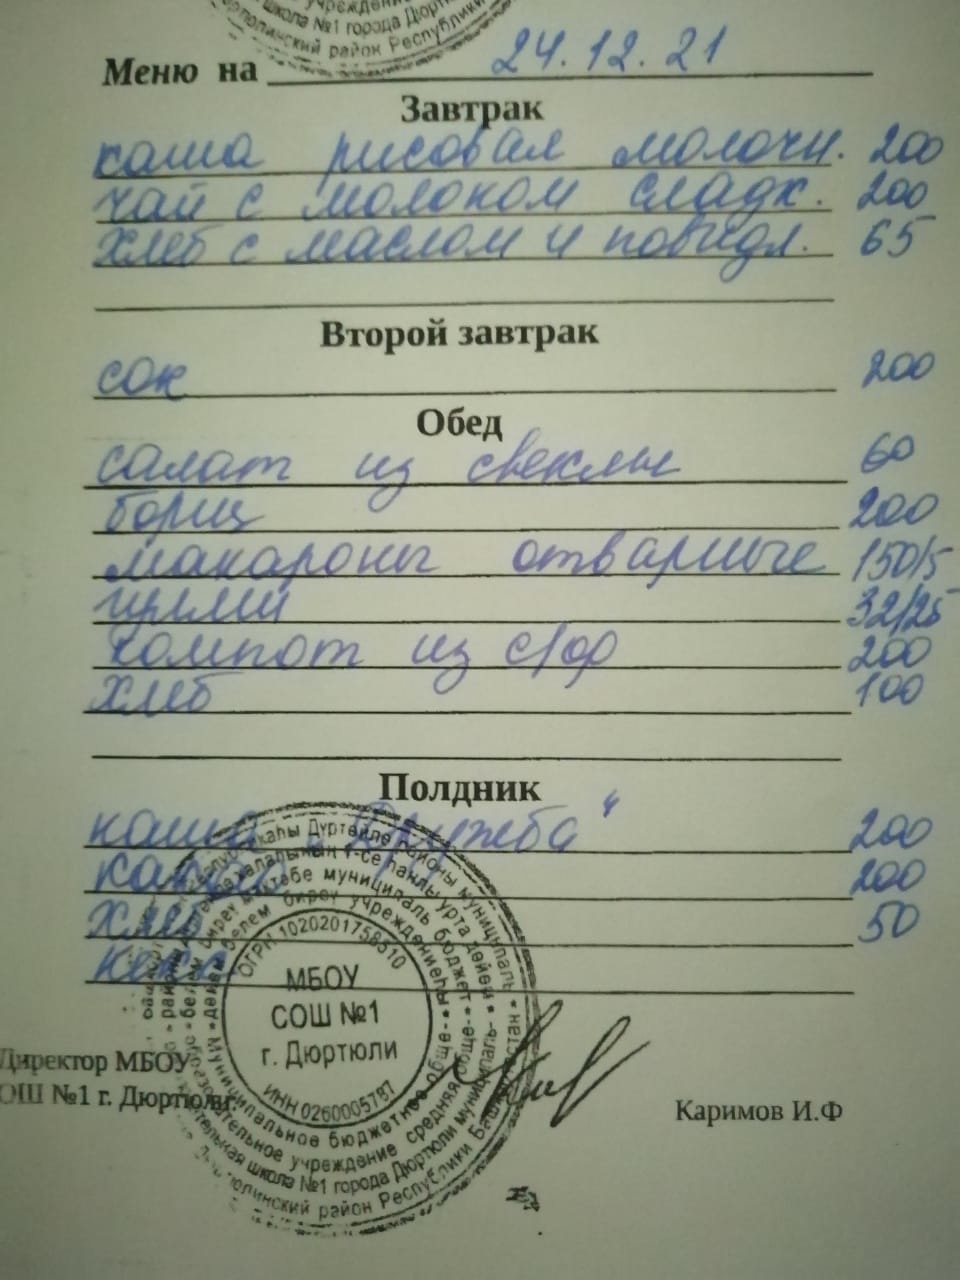 школа №1 города Дюртюли
Дюртюлинский район Республики
Меню на 24.12.21
Завтрак
каша рисовая молочн. 200
чай с молоком сладк. 200
хлеб с маслом и повидл. 65
Второй завтрак
сок 200
Обед
салат из свеклы 60
борщ 200
макароны отварные 150/5
гуляш 32/25
компот из с/фр 200
хлеб 100
Полдник
каша "Дружба" 200
200
хлеб 50
ОГРН 1020201758510
МБОУ
СОШ №1
г. Дюртюли
ИНН 0260005787
Директор МБОУ
ОШ №1 г. Дюртюли:
Каримов И.Ф
Муниципальное бюджетное обще-
образовательное учреждение средняя обще-
школа №1 города Дюртюли муниципаль-
район Республики Башкортостан